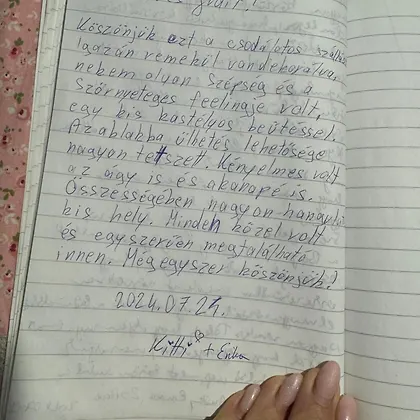 Köszönjük ezt a csodálatos szállást
Igazán remekül van dekorálva,
nekem olyan Szépség és a
Szörnyeteges feelingje volt,
egy kis kastélyos beütéssel.
Az ablakba ülhetés lehetősége
nagyon tetszett. Kényelmes volt
az ágy is és a kanapé is.
Összességében nagyon hangulatos
kis hely. Minden közel volt
és egyszerűen megtalálható
innen. Mégegyszer köszönjük!
2024.07.24.
Kitti + Erika